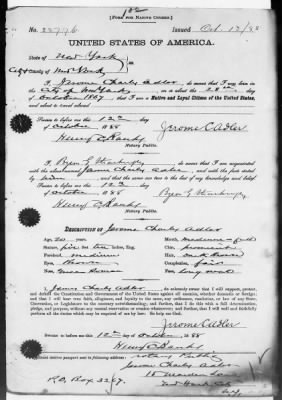 [FORM FOR NATIVE CITIZEN.]
No. Issued Oct 12/88
UNITED STATES OF AMERICA.
State of New York
City & County of New York
I, Jerome Charles Adler, do swear that I was born in
the City of New York, on or about the 28th day
of October 1867; that I am a Native and Loyal Citizen of the United States,
and about to travel abroad
Sworn to before me this 12th day
of October 1888
Jerome C. Adler
Henry C. Banks
Notary Public.
I, do swear that I am acquainted
with the above-named Jerome Charles Adler, and with the facts stated
by him, and that the same are true to the best of my knowledge and belief.
Sworn to before me this 12th day
of October 1888
Henry C. Banks
Notary Public.
DESCRIPTION OF Jerome Charles Adler
Age, 20 years. Mouth, medium
Stature, five feet ten inches, Eng. Chin,
Forehead, medium Hair, dark brown
Eyes, Brown Complexion, fair
Nose, Face, long oval
I, Jerome Charles Adler, do solemnly swear that I will support, protect,
and defend the Constitution and Government of the United States against all enemies, whether domestic or foreign;
and that I will bear true faith, allegiance, and loyalty to the same, any ordinance, resolution, or law of any State,
Convention, or Legislature to the contrary notwithstanding; and further, that I do this with a full determination,
pledge, and purpose, without any mental reservation or evasion whatsoever; and further, that I will well and faithfully
perform all the duties which may be required of me by law. So help me God.
Jerome C. Adler
Sworn to before me this 12th day of October 1888
Henry C. Banks
Notary Public
Jerome Charles Adler
Maiden Lane
P.O. Box 3267. New York City